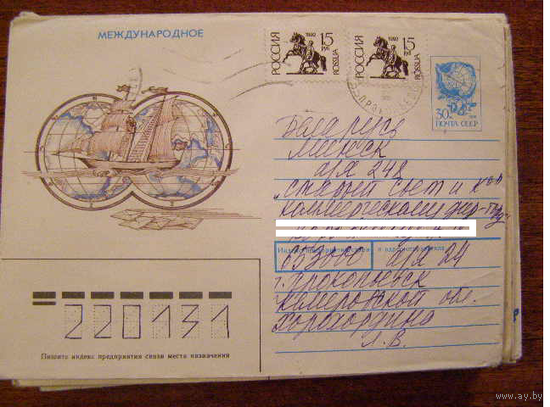 МЕЖДУНАРОДНОЕ
РОССИЯ 1992 15 РУБ ROSSIJA
РОССИЯ 1992 15 РУБ ROSSIJA
30к
ПОЧТА СССР
Беларусь
Минск
а/я 248
коммерческому
653000 а/я 24
г. Прокопьевск
Кемеровской обл.
Л. В.
220131
Пишите индекс предприятия связи места назначения
www.ay.by